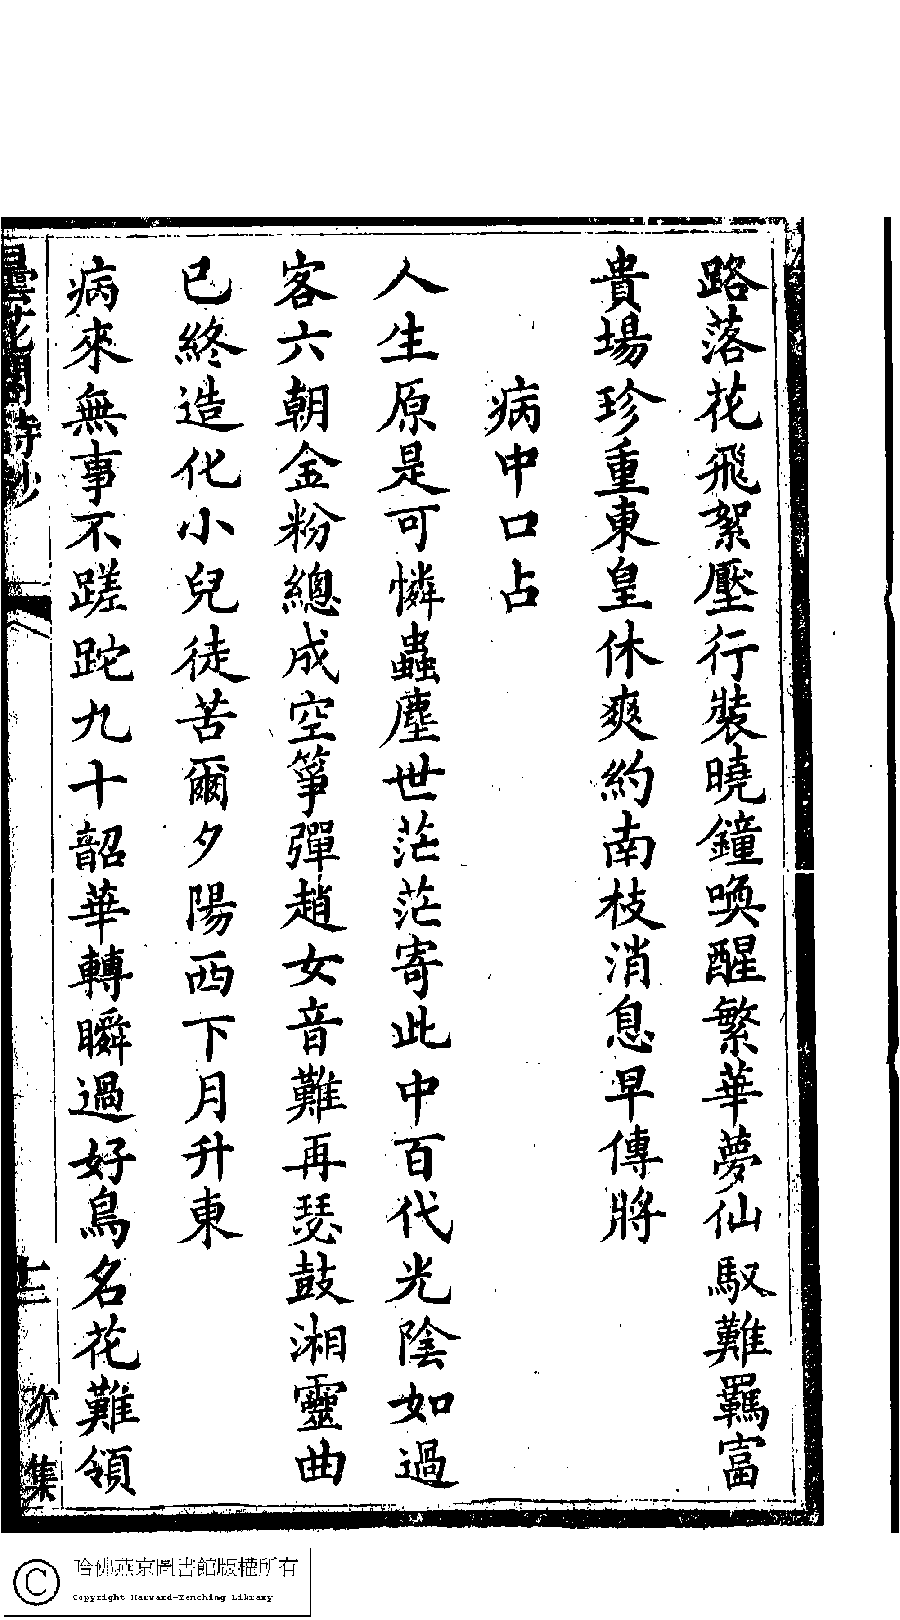 路落花飛絮壓行裝曉鐘喚醒繁華夢仙馭難羈富
貴場珍重東皇休爽約南枝消息早傳將
病中口占
人生原是可憐蟲塵世茫茫寄此中百代光陰如過
客六朝金粉總成空箏彈趙女音難再瑟鼓湘靈曲
已終造化小兒徒苦爾夕陽西下月升東
病來無事不蹉跎九十韶華轉瞬過好鳥名花難領
曇花閣詩鈔
十二
次集
哈佛燕京圖書館版權所有
Copyright Harvard-Yenching Library